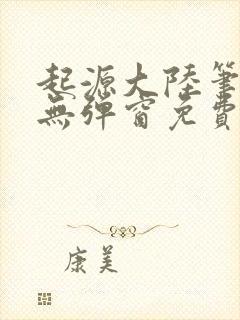 起源大陸筆
無彈窗免費
康美